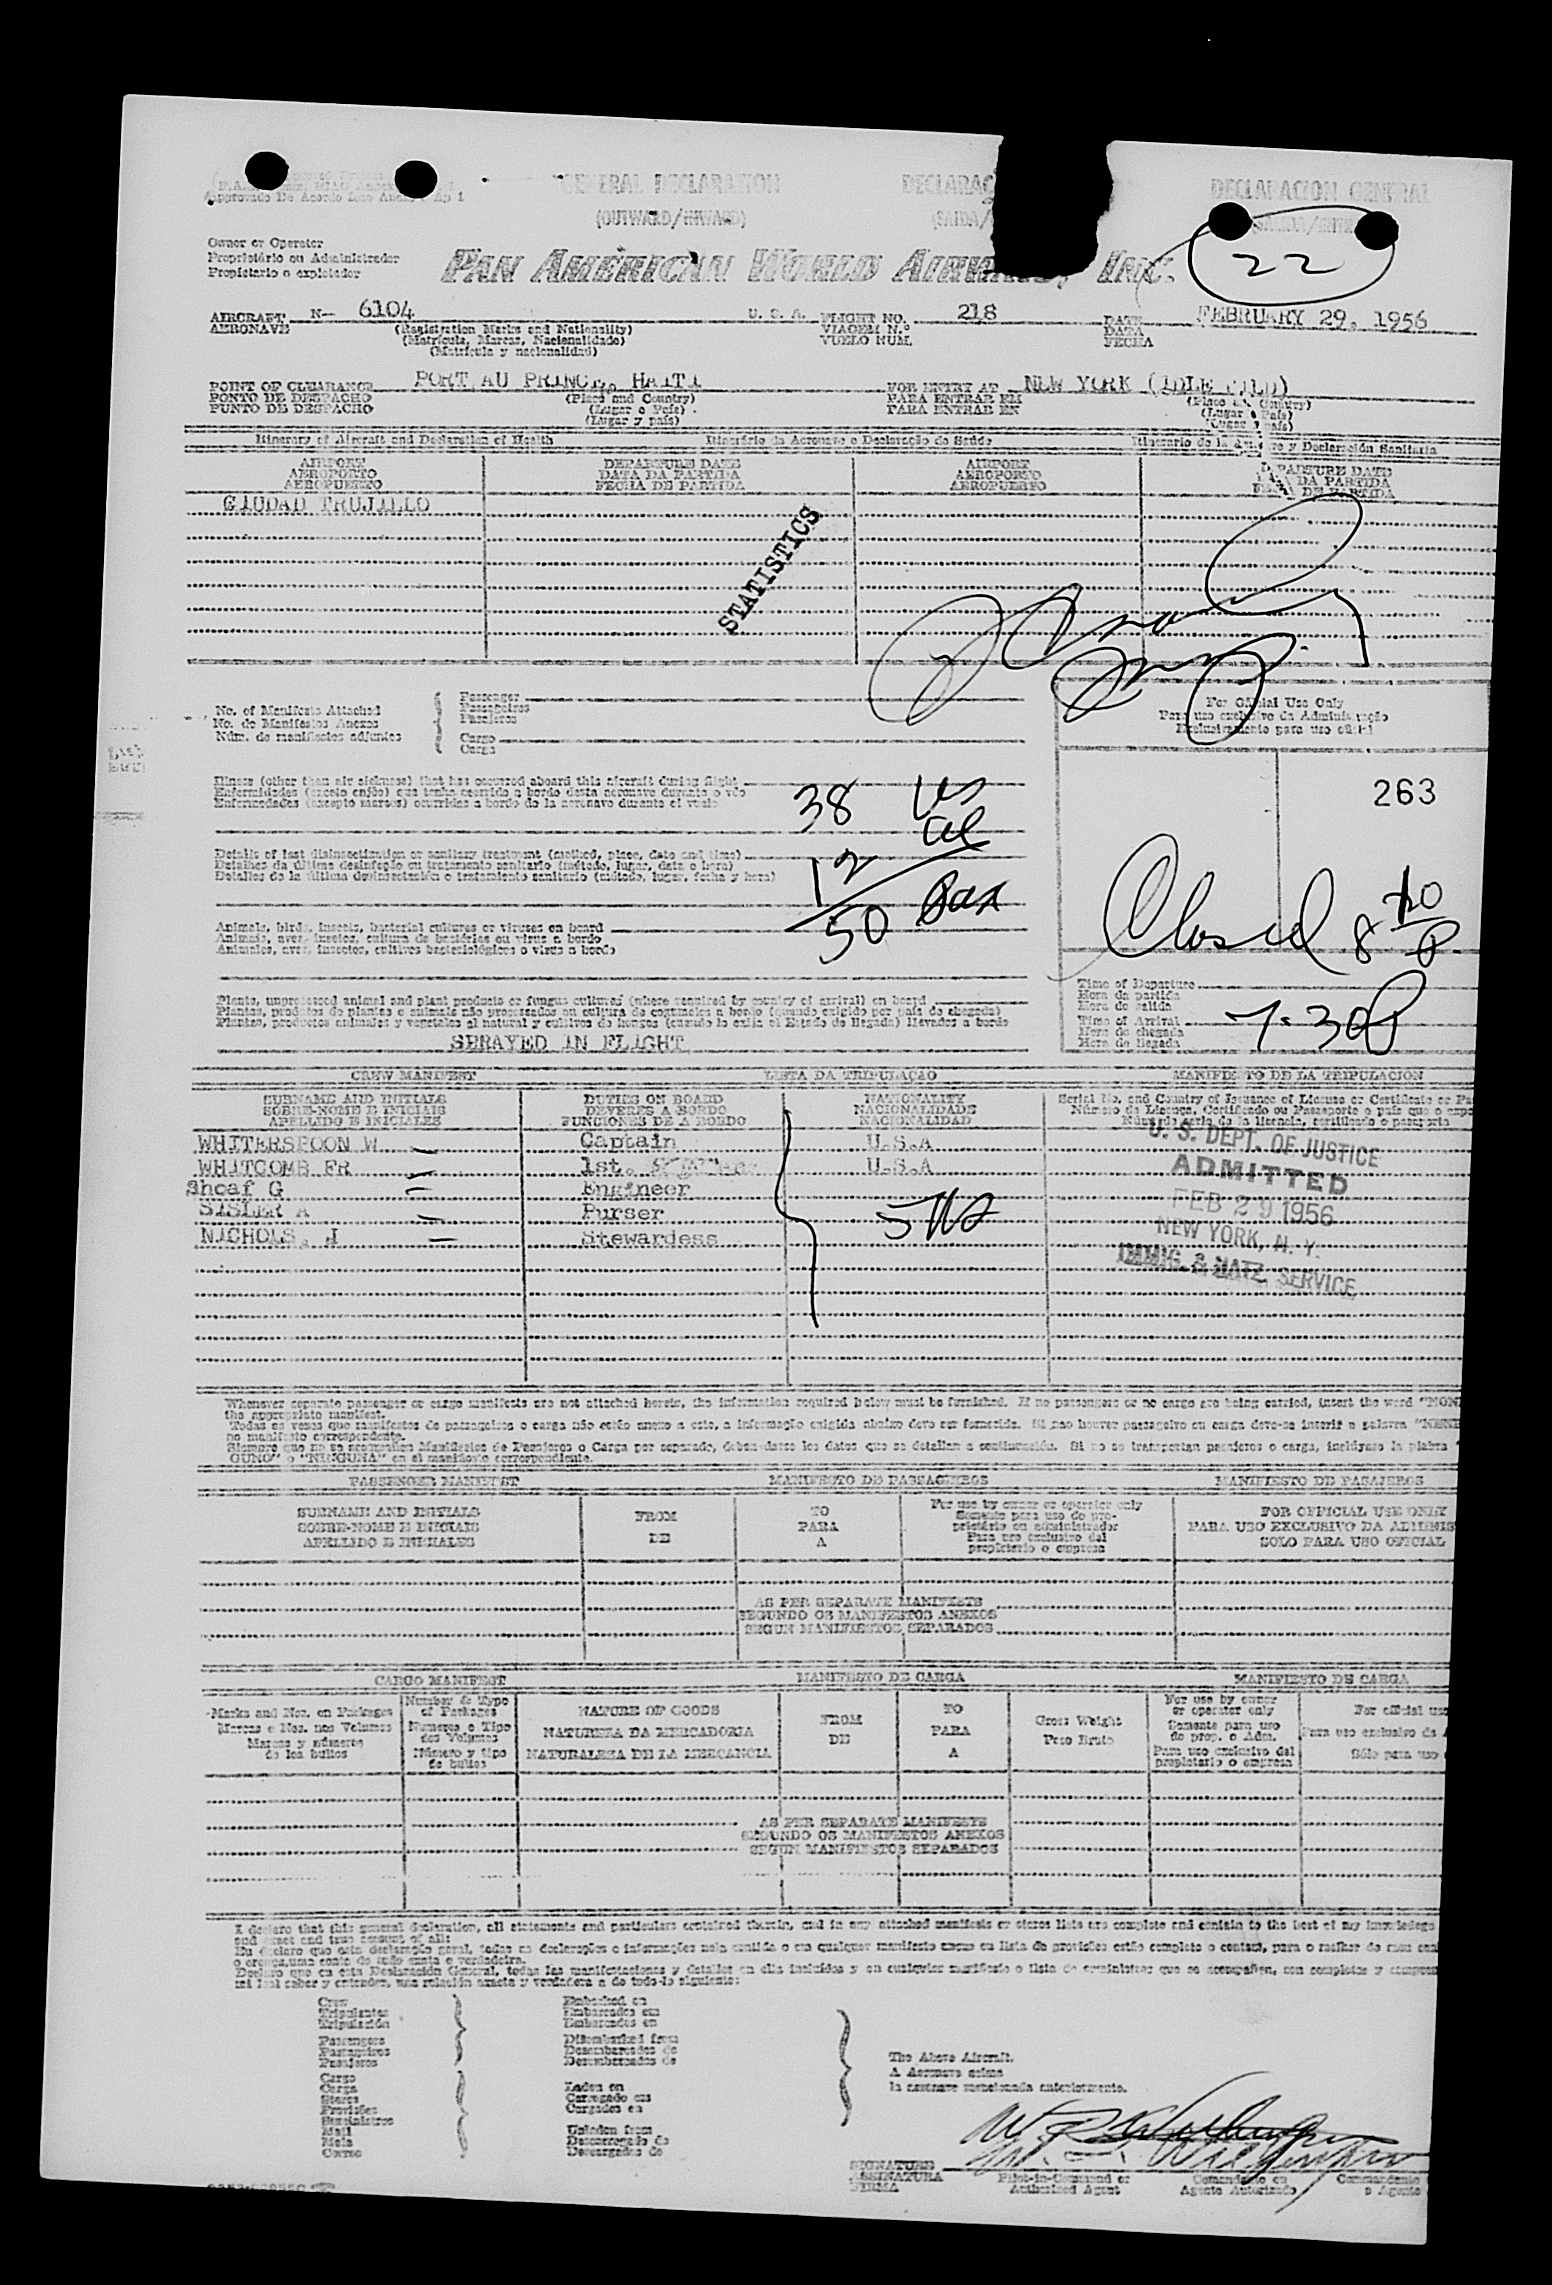 GENERAL DECLARATION DECLARAC DECLARACION GENERAL
(OUTWARD/INWARD) (SAIDA/
Owner or Operator
Proprietário ou Administrador
Propietario o explotador
PAN AMERICAN WORLD AIRWAYS, INC.
22
AIRCRAFT N- 6104 U. S. A. FLIGHT NO. 218 DATE FEBRUARY 29, 1956
AERONAVE (Registration Marks and Nationality) VIAGEM N.º DATA
(Matrícula, Marcas, Nacionalidade) VUELO NUM. FECHA
(Matrícula y nacionalidad)
POINT OF CLEARANCE PORT AU PRINCE, HAITI FOR ENTRY AT NEW YORK (IDLE FILD)
PONTO DE DESPACHO (Place and Country) PARA ENTRAR EM
PUNTO DE DESPACHO (Lugar e País) PARA ENTRAR EN (Lugar País)
(Lugar y país)
Itinerary of Aircraft and Declaration of Health Itinerário da Aeronave e Declaração de Saúde Itinerario de la y Declaración Sanitaria
AIRPORT DEPARTURE DATE AIRPORT DEPARTURE DATE
AEROPORTO DATA DA PARTIDA AEROPORTO DA PARTIDA
AEROPUERTO FECHA DE PARTIDA AEROPUERTO DE PARTIDA
CIUDAD TRUJILLO
STATISTICS
No. of Manifests Attached Passenger
No. de Manifestos Anexos Passageiros
Núm. de manifiestos adjuntos Pasajeros
Cargo
Carga
For Official Use Only
Para uso exclusivo da Administração
Exclusivamente para uso oficial
263
Illness (other than air sickness) that has occurred aboard this aircraft during flight
Enfermidades (exceto enjôo) que tenha ocorrido a bordo desta aeronave durante o vôo
Enfermedades (excepto mareos) ocurridas a bordo de la aeronave durante el vuelo
38 US
12 al
50 Pax
Details of last disinsectization or sanitary treatment (method, place, date and time)
Detalhes da última desinfeção ou tratamento sanitário (método, lugar, data e hora)
Detalles de la última desinsectación o tratamiento sanitario (método, lugar, fecha y hora)
Closed 8
Animals, birds, insects, bacterial cultures or viruses on board
Animais, aves, insetos, cultura de bactérias ou virus a bordo
Animales, aves, insectos, cultivos bacteriológicos o virus a bordo
Plants, unprocessed animal and plant products or fungus cultures (where required by country of arrival) on board
Plantas, produtos de plantas e animais não processados ou cultura de cogumelos a bordo (quando exigido por país de chegada)
Plantas, productos animales y vegetales al natural y cultivos de hongos (cuando lo exija el Estado de llegada) llevados a bordo
SPRAYED IN FLIGHT
Time of Departure
Hora da partida
Hora de salida
Time of Arrival 7-30P
Hora da chegada
Hora de llegada
CREW MANIFEST LISTA DA TRIPULAÇÃO MANIFIESTO DE LA TRIPULACION
SURNAME AND INITIALS DUTIES ON BOARD NATIONALITY Serial No. and Country of Issuance of License or Certificate or Pa
SOBRE-NOME E INICIAIS DEVERES A BORDO NACIONALIDADE Número da Licença, Certificado ou Passaporte e país que o expe
APELLIDO E INICIALES FUNCIONES DE A BORDO NACIONALIDAD Número serie de la licencia, certificado o pasaporte
WHITERSPOON W Captain U.S.A
WHITCOMB FR 1st. U.S.A
Shoaf G Engineer
SISLER A Purser
NICHOLS, J Stewardess
5 US
U. S. DEPT. OF JUSTICE
ADMITTED
FEB 29 1956
NEW YORK, N. Y.
IMMIG. & NATZ. SERVICE
Whenever separate passenger or cargo manifests are not attached hereto, the information required below must be furnished. If no passengers or no cargo are being carried, insert the word "NON
the appropriate manifest.
Todas as vezes que manifestos de passageiros o carga não estão anexo a este, a informação exigida abaixo deve ser fornecida. Si nao houver passageiro ou carga deve-se inserir a palavra "NENH
no manifesto correspondente.
Siempre que no se acompañen Manifiestos de Pasajeros o Carga por separado, deben darse los datos que se detallan a continuación. Si no se transportan pasajeros o carga, inclúyase la plabra "
GUNO" o "NINGUNA" en el manifiesto correspondiente.
PASSENGER MANIFEST MANIFESTO DE PASSAGEIROS MANIFIESTO DE PASAJEROS
SURNAME AND INITIALS FROM TO For use by owner or operator only FOR OFFICIAL USE ONLY
SOBRE-NOME E INICIAIS DE PARA Somente para uso de pro- PARA USO EXCLUSIVO DA ADMINIS
APELLIDO E INICIALES A prietário ou administrador SOLO PARA USO OFICIAL
Para uso exclusivo del
propietario o empresa
AS PER SEPARATE MANIFESTS
SEGUNDO OS MANIFESTOS ANEXOS
SEGUN MANIFIESTOS SEPARADOS
CARGO MANIFEST MANIFESTO DE CARGA MANIFIESTO DE CARGA
Marks and Nos. on Packages Number & Type of Packages NATURE OF GOODS FROM TO Gross Weight For use by owner or operator only For official use
Marcas e Nos. nos Volumes Numeros e Tipo dos Volumes NATUREZA DA MERCADORIA DE PARA Peso Bruto Somente para uso de prop. o Adm. Para uso exclusivo da A
Marcas y números de los bultos Número y tipo de bultos NATURALEZA DE LA MERCANCIA A Para uso exclusivo del propietario o empresa Sólo para uso
AS PER SEPARATE MANIFESTS
SEGUNDO OS MANIFESTOS ANEXOS
SEGUN MANIFIESTOS SEPARADOS
I declare that this general declaration, all statements and particulars contained therein, and in any attached manifests or stores lists are complete and contain to the best of my knowledge
and exact and true account of all:
Eu declaro que esta declaração geral, todas as declarações e informações nela contida o em qualquer manifesto
Declaro que en esta Declaración General, todas las manifestaciones y detalles en ella incluidos y en cualquier manifiesto o lista de suministros que se acompañen, son completos y
mi leal saber y entender, una relación exacta y verdadera a de todo lo siguiente:
Crew Embarked on
Tripulantes Embarcados em
Tripulación Embarcados en
Passengers Disembarked from
Passageiros Desembarcados de
Pasajeros Desembarcados de
Cargo Laden on
Carga Carregado em
Stores Cargados en
Provisões
Suministros
Mail Unladen from
Mala Descarregado de
Correo Descargados de
The Above Aircraft.
A Aeronave acima
la aeronave mencionada anteriormente.
SIGNATURE
ASSINATURA Pilot-in-Command or Comandante ou Comandante
FIRMA Authorized Agent Agente Autorizado o Agente